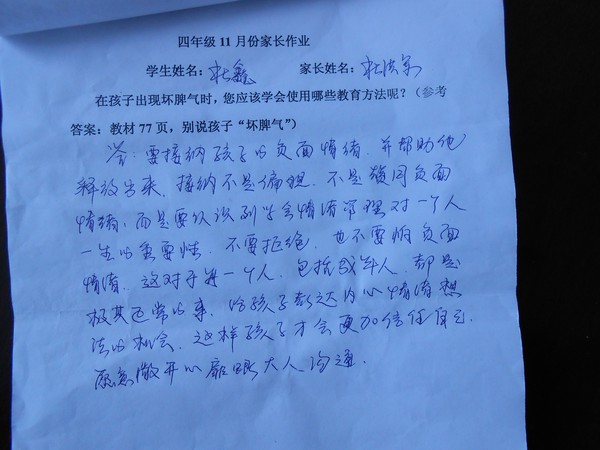 四年级11月份家长作业
学生姓名：杜鑫 家长姓名：杜洪军
在孩子出现坏脾气时，您应该学会使用哪些教育方法呢？（参考
答案：教材77页，别说孩子“坏脾气”）
答：要接纳孩子的负面情绪，并帮助他
释放出来，接纳不是偏袒，不是赞同负面
情绪，而是要认识到学会情绪管理对一个人
一生的重要性，不要拒绝，也不要怕负面
情绪，这对于每一个人，包括成年人，都是
极其正常的事，给孩子表达内心情绪想
法的机会，这样孩子才会更加信任自己，
愿意敞开心扉跟大人沟通。